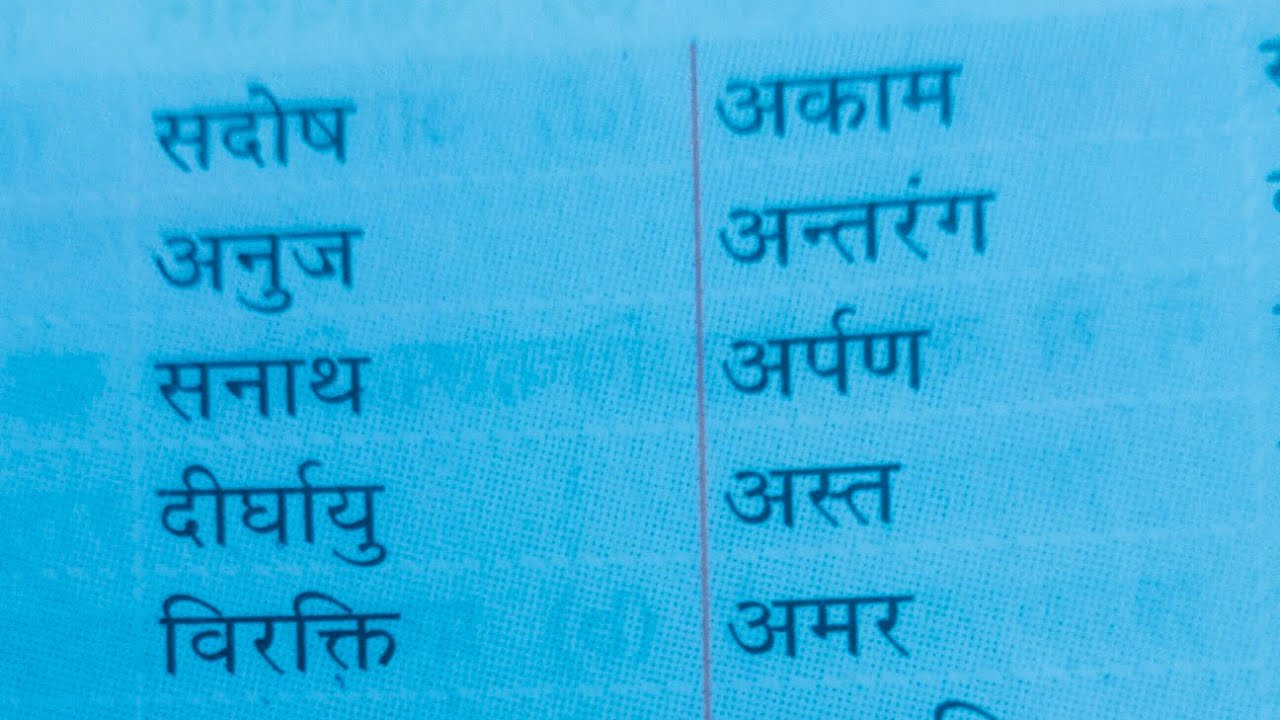 सदोष अकाम
अनुज अन्तरंग
सनाथ अर्पण
दीर्घायु अस्त
विरक्ति अमर